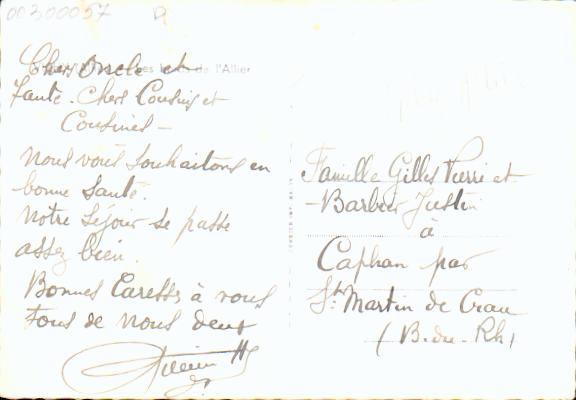 00300057
Chers Oncle et
de l'Allier
Tante. Chers Cousins et
Cousines -
Nous vous souhaitons en
bonne santé.
Notre séjour se passe
assez bien.
Bonnes Caresses à vous
Tous de nous deux
Famille Gilles Pierre et
Barbier Justin
à
Caphan par
St Martin de Crau
(B. du Rh)